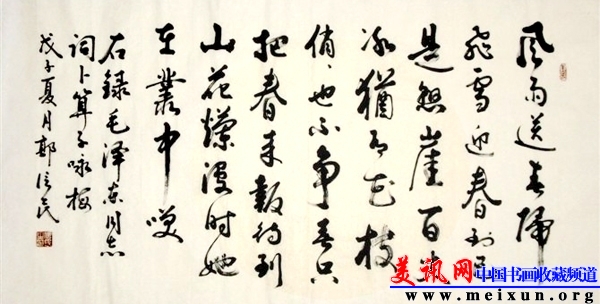 风雨送春歸
飛雪迎春到已
是懸崖百丈
冰猶有花枝
俏々也不争春只
把春来報待到
山花爛漫时她
在叢中咲
右録毛泽东同志
词卜算子咏梅
戊子夏月郭信民
美讯网中国书画收藏频道
www.meixun.org